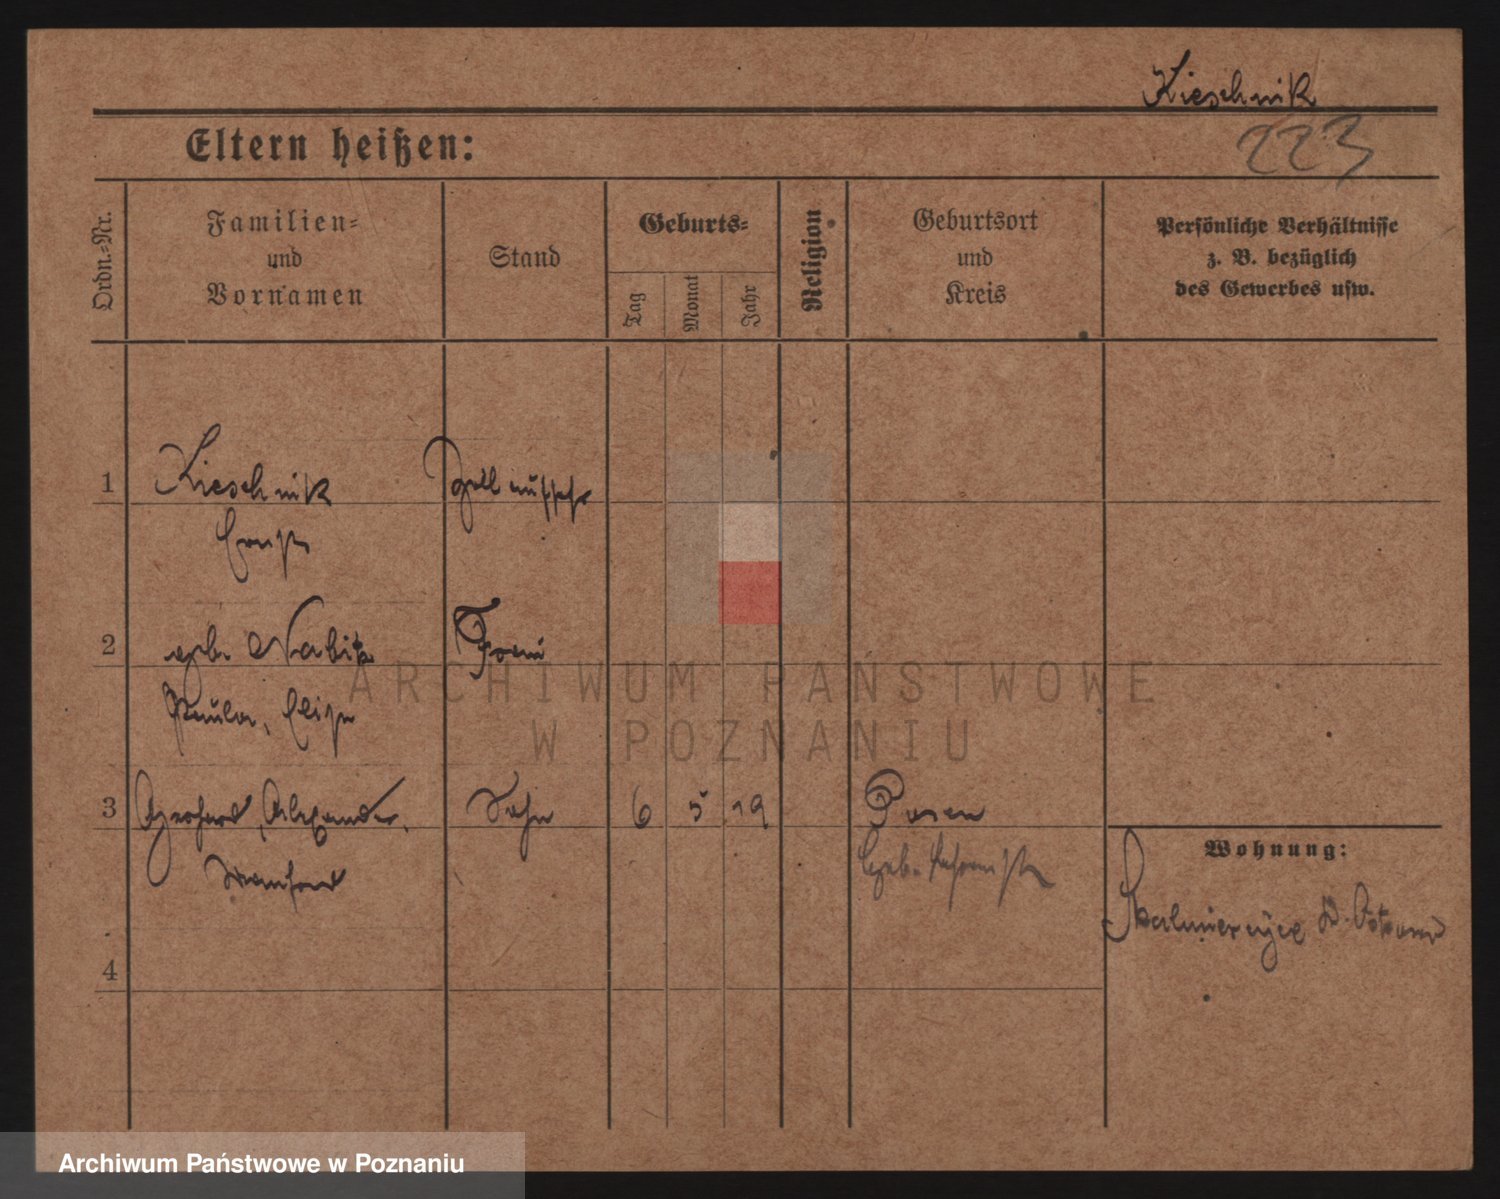 Kieschnik
Eltern heißen:
223
Ordn.-Nr.
Familien-
und
Vornamen
Stand
Geburts-
Tag
Monat
Jahr
Religion
Geburtsort
und
Kreis
Persönliche Verhältnisse
z. B. bezüglich
des Gewerbes usw.
1
Kieschnik
Zollaufseher
Ernst
2
geb.
Frau
Paula, Elise
3
Gerhard, Alexander,
Sohn
6
5
19
Posen
Manfred
Geb.
Wohnung:
Skalmierzyce
4
ARCHIWUM PAŃSTWOWE
W POZNANIU
Archiwum Państwowe w Poznaniu